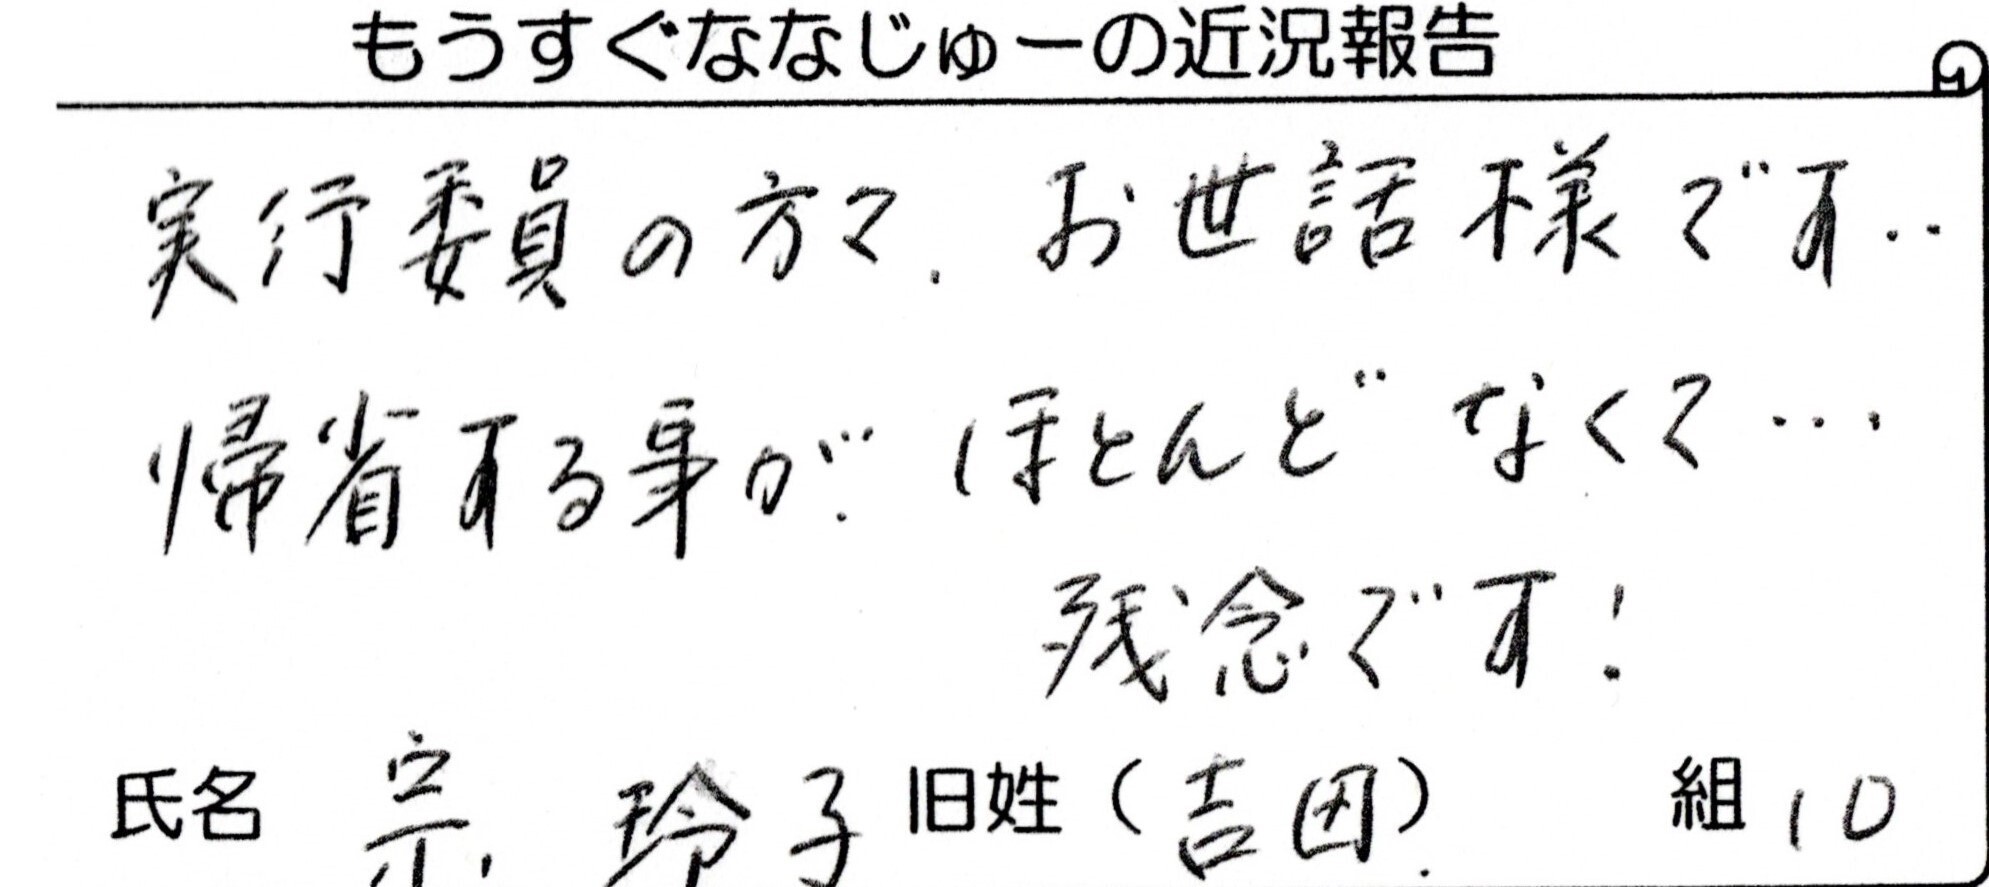 もうすぐななじゅーの近況報告
実行委員の方々、お世話様です‥
帰省する事が、ほとんどなくて…
残念です!
氏名 宗 玲子 旧姓(吉田) 組 10